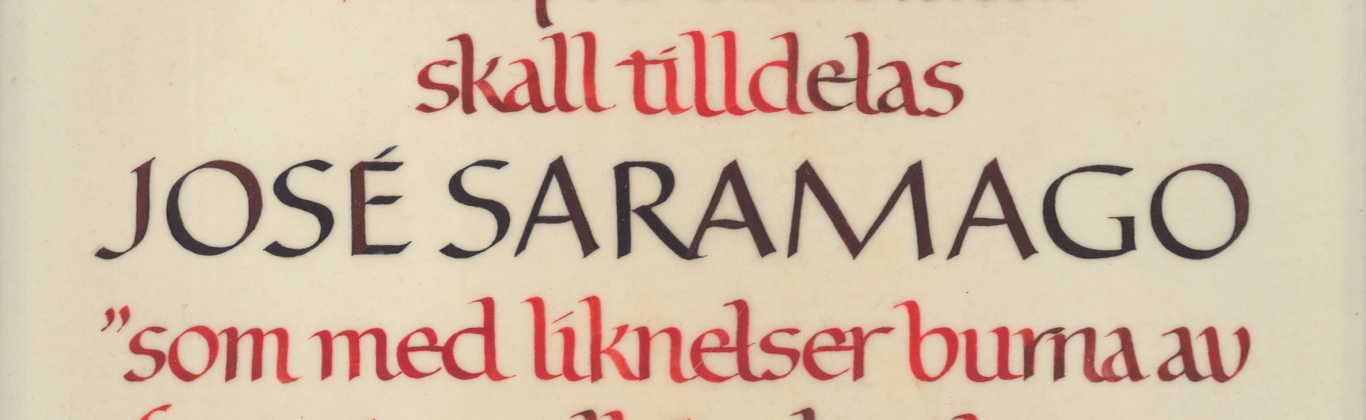 skall tilldelas
JOSÉ SARAMAGO
”som med liknelser burna av